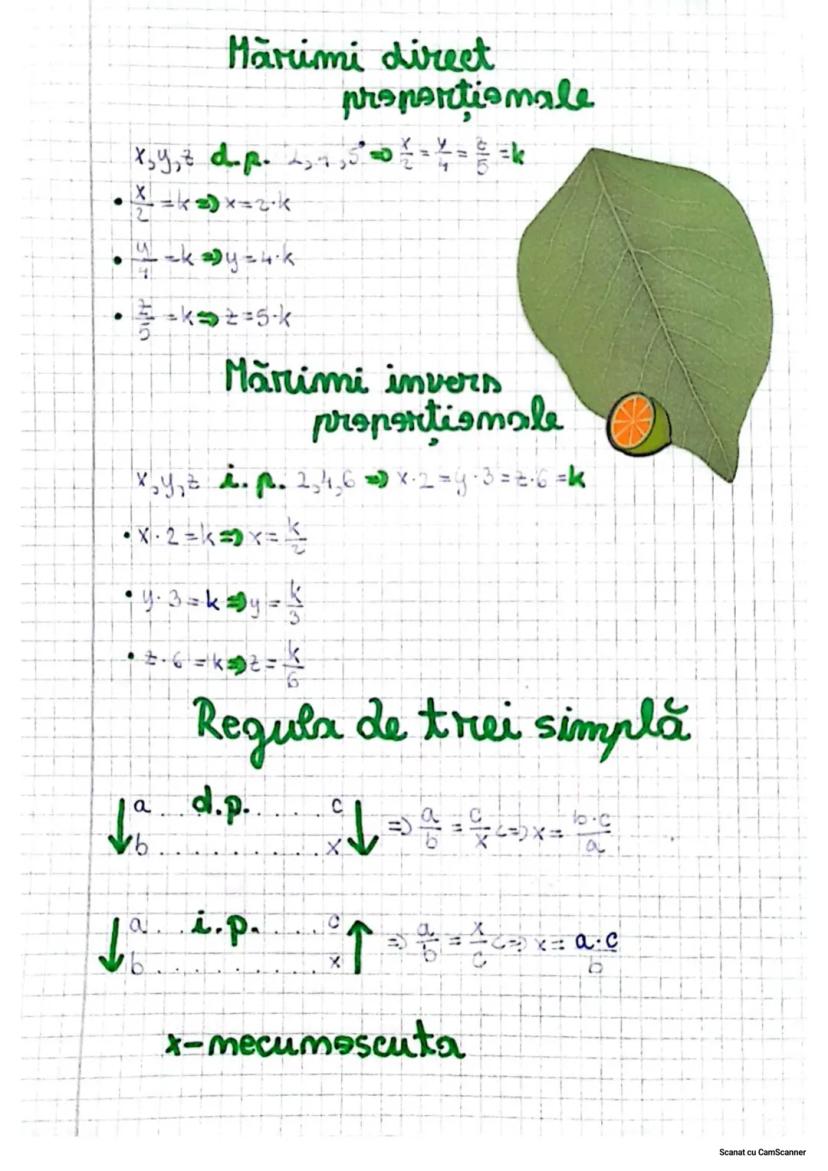 Mărimi direct
proporționale
x,y,z d.p. 2,4,5 => x/2 = y/4 = z/5 = k
• x/2 = k => x = 2·k
• y/4 = k => y = 4·k
• z/5 = k => z = 5·k
Mărimi invers
proporționale
x,y,z i.p. 2,4,6 => x·2 = y·3 = z·6 = k
• x·2 = k => x = k/2
• y·3 = k => y = k/3
• z·6 = k => z = k/6
Regula de trei simplă
a...d.p.....c => a/b = c/x <=> x = b·c/a
b..........x
a...i.p.....c => a/b = x/c <=> x = a·c/b
b..........x
x-necunoscuta
Scanat cu CamScanner